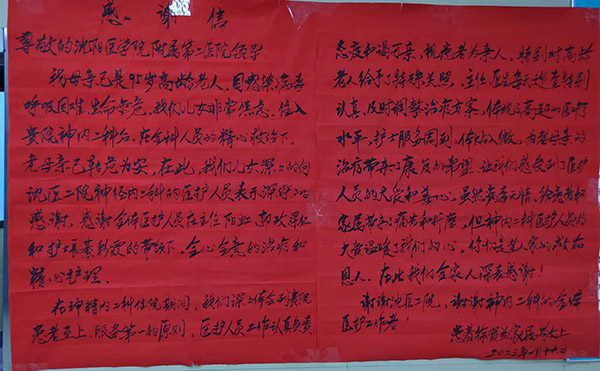 感谢信
尊敬的沈阳医学院附属第二医院领导
我母亲已是95岁高龄老人，因感染病毒
呼吸困难，生命危，我们儿女非常焦虑，住入
贵院神内二科后，在全科人员的精心救治下，
老母亲已转危为安，在此，我们儿女深深的向
沈医二院神经内二科的医护人员表示深深的
感谢。感谢全体医护人员在主任阳
和护士长的带领下，全心全意的治疗和
精心护理。
在神经内二科住院期间，我们深深体会到贵院
患者至上，服务第一的原则，医护人员工作认真负责
态度和谒可亲，视患者为亲人，特别对高龄
老人给予了特殊关照。主任医生每天巡查特别
认真，及时调整治疗方案，高超的医疗
水平，护士服务周到，体贴入微，为老母亲的
治疗带来了康复的希望，让我们感受到了医护
人员的大爱和善心。虽然病毒无情，给患者和
家属带来了痛苦和折磨，但神内二科医护人员的
大爱温暖了我们的心，你们是老人家的救命
恩人。在此我们全家人深表感谢！
谢谢沈医二院，谢谢神内二科的全体
医护工作者！
患者徐家属敬上
2023年1月16日